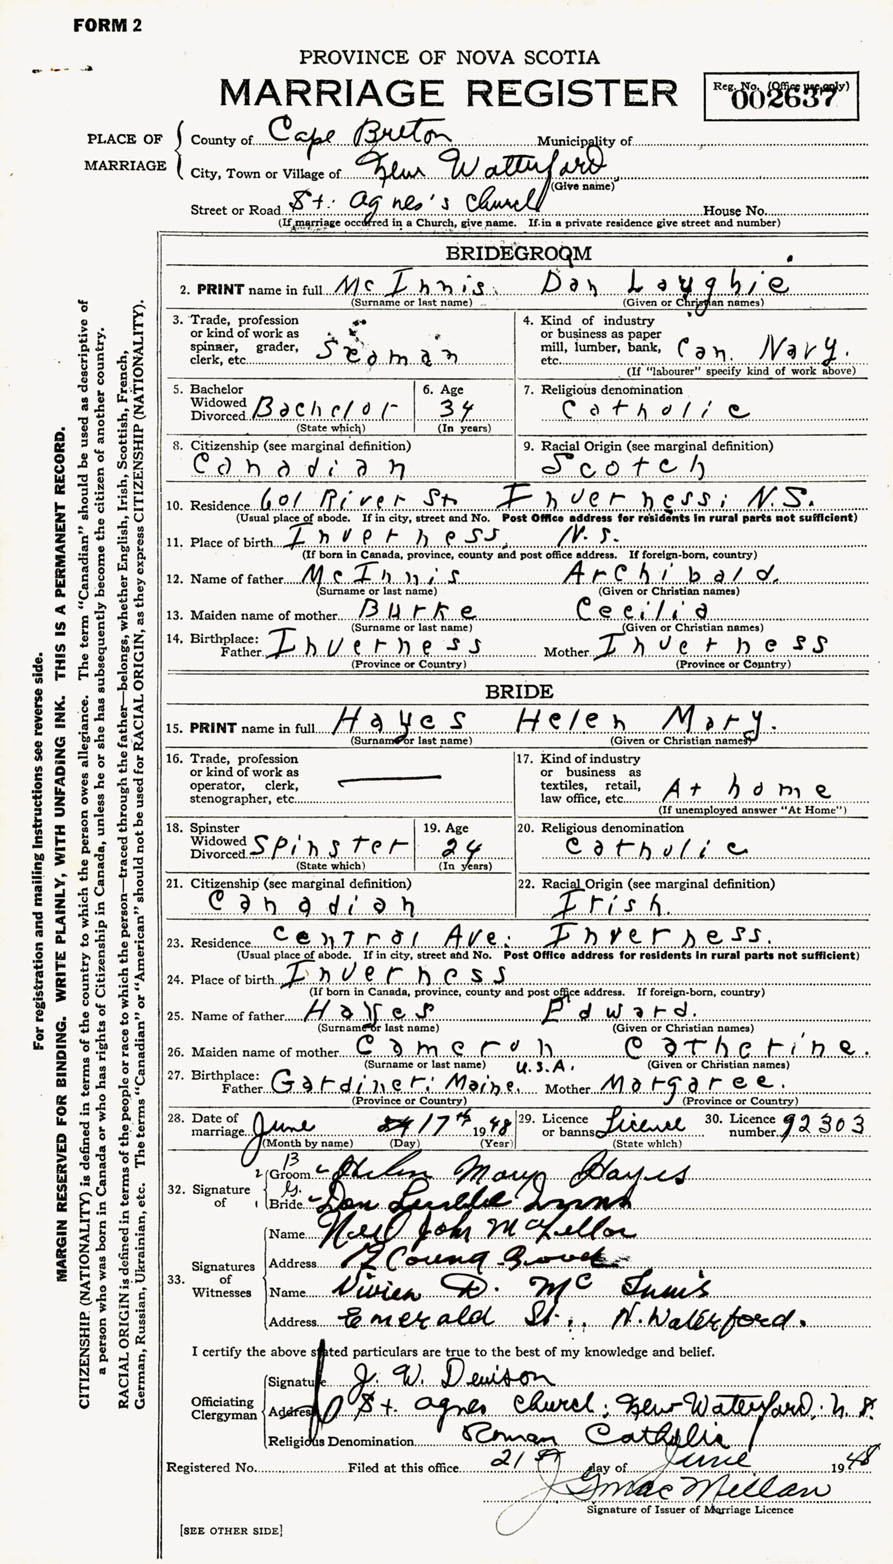 FORM 2
PROVINCE OF NOVA SCOTIA
MARRIAGE REGISTER
Reg. No. (Office use only)
002637
PLACE OF MARRIAGE
County of Cape Breton Municipality of
City, Town or Village of New Watterford
(Give name)
Street or Road St. Agnes's Church House No.
(If marriage occurred in a Church, give name. If in a private residence give street and number)
BRIDEGROOM
2. PRINT name in full Mc Innis Dan Laughie
(Surname or last name) (Given or Christian names)
3. Trade, profession or kind of work as spinner, grader, clerk, etc. Seaman
4. Kind of industry or business as paper mill, lumber, bank, etc. Can. Navy.
(If "labourer" specify kind of work above)
5. Bachelor Widowed Divorced Bachelor
(State which)
6. Age 34
(In years)
7. Religious denomination Catholic
8. Citizenship (see marginal definition) Canadian
9. Racial Origin (see marginal definition) Scotch
10. Residence 601 River St Inverness, N.S.
(Usual place of abode. If in city, street and No. Post Office address for residents in rural parts not sufficient)
11. Place of birth Inverness, N.S.
(If born in Canada, province, county and post office address. If foreign-born, country)
12. Name of father McInnis Archibald.
(Surname or last name) (Given or Christian names)
13. Maiden name of mother Burke Cecilia
(Surname or last name) (Given or Christian names)
14. Birthplace: Father Inverness Mother Inverness
(Province or Country) (Province or Country)
BRIDE
15. PRINT name in full Hayes Helen Mary.
(Surname or last name) (Given or Christian names)
16. Trade, profession or kind of work as operator, clerk, stenographer, etc. —
17. Kind of industry or business as textiles, retail, law office, etc. At home
(If unemployed answer "At Home")
18. Spinster Widowed Divorced Spinster
(State which)
19. Age 24
(In years)
20. Religious denomination Catholic
21. Citizenship (see marginal definition) Canadian
22. Racial Origin (see marginal definition) Irish.
23. Residence Central Ave: Inverness.
(Usual place of abode. If in city, street and No. Post Office address for residents in rural parts not sufficient)
24. Place of birth Inverness
(If born in Canada, province, county and post office address. If foreign-born, country)
25. Name of father Hayes Edward.
(Surname or last name) (Given or Christian names)
26. Maiden name of mother Cameron Catherine.
(Surname or last name) U.S.A. (Given or Christian names)
27. Birthplace: Father Gardiner: Maine. Mother Margaree.
(Province or Country) (Province or Country)
28. Date of marriage June 17th 1948
(Month by name) (Day) (Year)
29. Licence or banns Licence
(State which)
30. Licence number 92303
32. Signature of
2 (Groom B Helen Mary Hayes
1 (Bride G. Dan
33. Signatures of Witnesses
Name Neil John McKellar
Address
Name Vivien D. Mc Innis
Address Emerald St., N. Waterford.
I certify the above stated particulars are true to the best of my knowledge and belief.
Officiating Clergyman
Signature J. W. Denison
Address St. Agnes Church: New Waterford, N.S.
Religious Denomination Roman Catholic
Registered No. Filed at this office 21st day of June 1948
J MacMillan
Signature of Issuer of Marriage Licence
[SEE OTHER SIDE]
For registration and mailing instructions see reverse side.
MARGIN RESERVED FOR BINDING. WRITE PLAINLY, WITH UNFADING INK. THIS IS A PERMANENT RECORD.
CITIZENSHIP (NATIONALITY) is defined in terms of the country to which the person owes allegiance. The term "Canadian" should be used as descriptive of
a person who was born in Canada or who has rights of Citizenship in Canada, unless he or she has subsequently become the citizen of another country.
RACIAL ORIGIN is defined in terms of the people or race to which the person—traced through the father—belongs, whether English, Irish, Scottish, French,
German, Russian, Ukrainian, etc. The terms "Canadian" or "American" should not be used for RACIAL ORIGIN, as they express CITIZENSHIP (NATIONALITY).